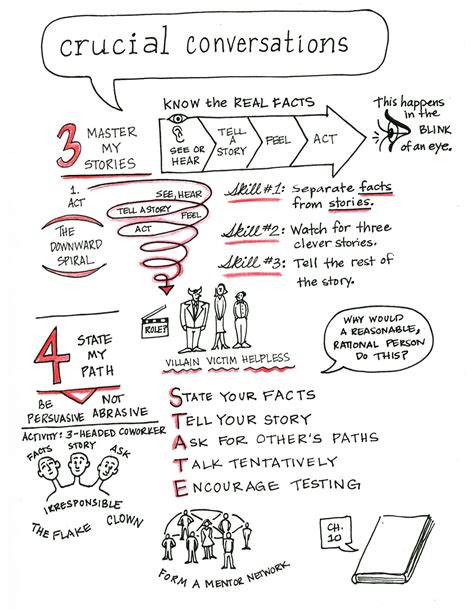 crucial conversations
KNOW the REAL FACTS
SEE OR
HEAR
TELL
A
STORY
FEEL
ACT
This happens
in the
BLINK
of an eye.
3 MASTER
MY
STORIES
1.
ACT
THE
DOWNWARD
SPIRAL
SEE, HEAR
TELL A STORY
FEEL
ACT
Skill #1: Separate facts
from stories.
Skill #2: Watch for three
clever stories.
Skill #3: Tell the rest of
the story.
ROLE?
VILLAIN VICTIM HELPLESS
WHY WOULD
A REASONABLE,
RATIONAL PERSON
DO THIS?
4 STATE
MY
PATH
BE NOT
PERSUASIVE ABRASIVE
ACTIVITY: 3-HEADED COWORKER
FACTS
STORY
ASK
IRRESPONSIBLE
THE FLAKE
CLOWN
STATE YOUR FACTS
TELL YOUR STORY
ASK FOR OTHER'S PATHS
TALK TENTATIVELY
ENCOURAGE TESTING
FORM A MENTOR NETWORK
CH.
10